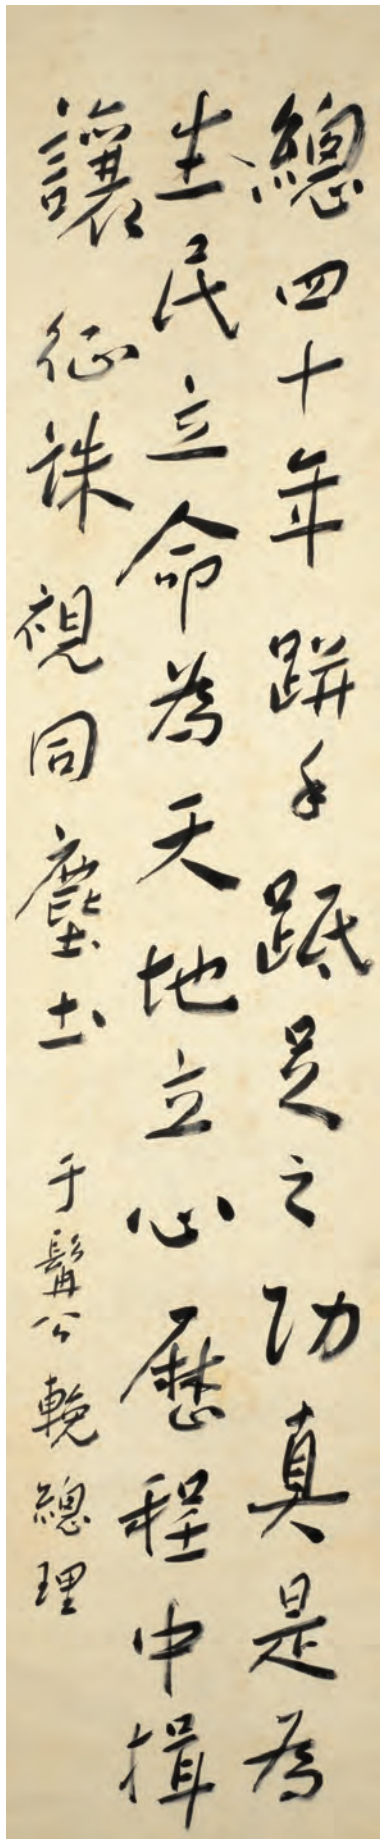 總四十年跰手跖足之功真是為
生民立命為天地立心歷程中揖
讓征誅視同塵土于髯公輓總理